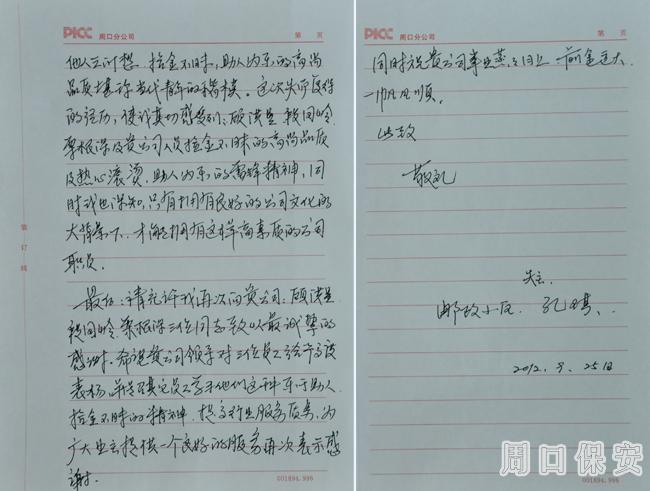 PICC 周口分公司
第 页
他人之所想、拾金不昧,助人为乐的高尚
品质堪称当代青年的楷模。这次失而复得
的经历,使我真切感受到:顾洪星
李根深及贵公司人员拾金不昧的高尚品质
及热心滚烫、助人为乐的雷锋精神,同
时我也深知,只有拥有良好的公司文化的
大背景下,才能拥有这样高素质的公司
职员。
最后:请允许我再次向贵公司:顾洪星
根深三位同志致以最诚挚的
感谢。希望贵公司领导对三位员工给予高度
表扬,并号召其它员工学习他们这种乐于助人、
拾金不昧的精神,提高行业服务质量,为
广大业主提供一个良好的服务再次表示感
谢。
装订线
001894.996
PICC 周口分公司
第 页
同时祝贵公司事业蒸蒸日上 前途远大
一帆风顺。
此致
敬礼
失主
邮政小区 孔
2012. 9. 25日
001894.996
周口保安